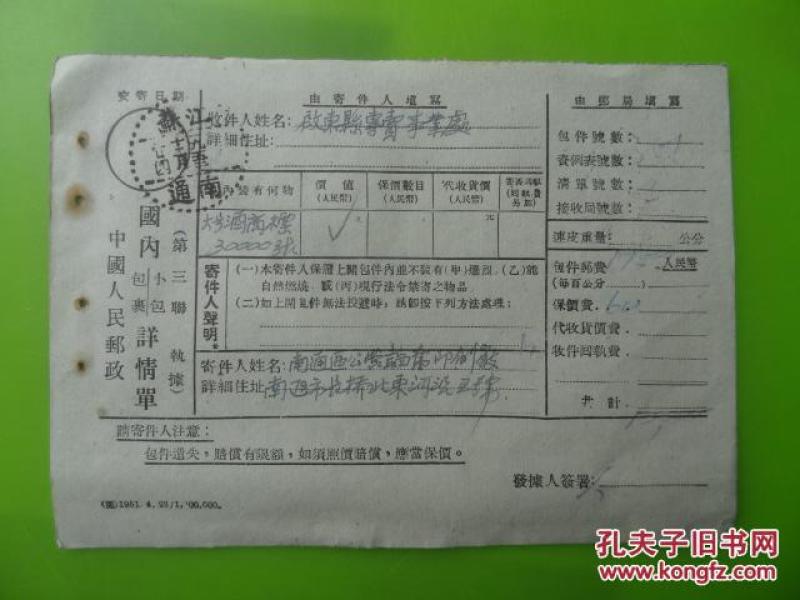 安寄日期
江蘇
南通
國內
小包
包裹
詳情單
(第三聯 執據)
中國人民郵政
由寄件人填寫
收件人姓名:啟東縣專賣事業處
詳細住址:
內裝有何物
價值
(人民幣)
保價數目
(人民幣)
代收貨價
(人民幣)
元
元
大号酒商标
30000張
寄件人聲明
(一)本寄件人保證上開包件內並不裝有(甲)爆烈,(乙)能
自然燃燒,或(丙)現行法令禁寄之物品。
(二)如上開包件無法投遞時,請即按下列方法處理:
寄件人姓名:南通區公營韜奮印刷廠
詳細住址:南通市長橋北東河沿五號
由郵局填寫
包件號數:
資例表號數:
清單號數:
接收局號數:
連皮重量: 公分
包件郵費 人民幣
(每百公分)
保價費
代收貨價費
收件回執費
共計
請寄件人注意:
包件遺失,賠償有限額,如須照價賠償,應當保價。
發據人簽署:
(滬)1951. 4. 23/1,00,000.
孔夫子旧书网
www.kongfz.com